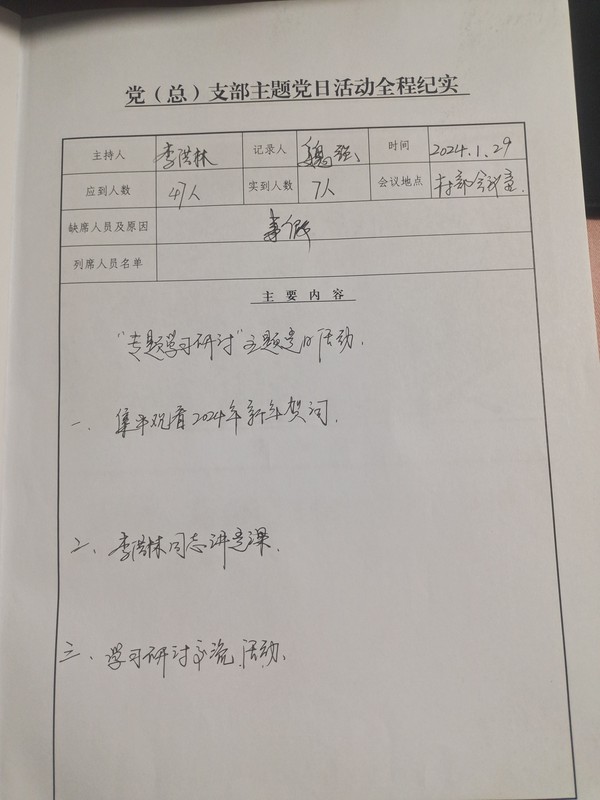 党（总）支部主题党日活动全程纪实
主持人 李洪林 记录人 魏强 时间 2024.1.29
应到人数 47人 实到人数 7人 会议地点 村部会议室.
缺席人员及原因 事假
列席人员名单
主要内容
“专题学习研讨”主题党日活动.
一. 集中观看2024年新年贺词.
二、李洪林同志讲党课.
三、学习研讨交流活动.